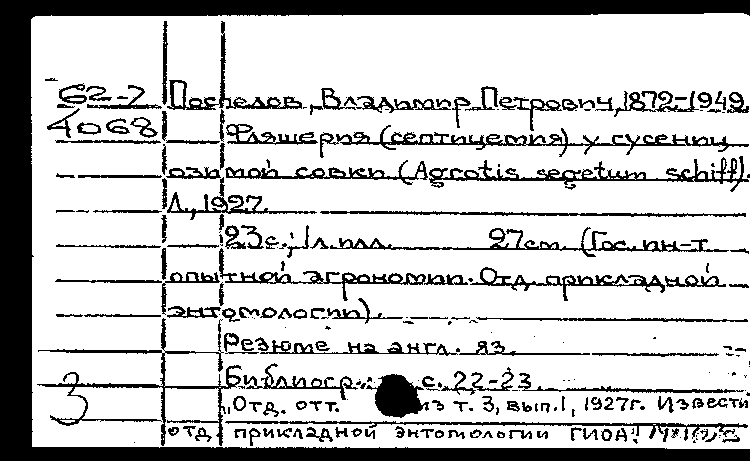 62-7 Поспелов, Владимир Петрович, 1872-1949.
4068 Фляшерия (септицемия) у гусениц
озимой совки (Agrotis segetum schiff).
Л., 1927.
23с.; 1л. илл. 27см. (Гос. ин-т
опытной агрономии. Отд. прикладной
энтомологии).
Резюме на англ. яз.
Библиогр.: с. 22-23.
3 "Отд. отт. из т. 3, вып. 1, 1927г. Извести
отд. прикладной энтомологии ГИОА"